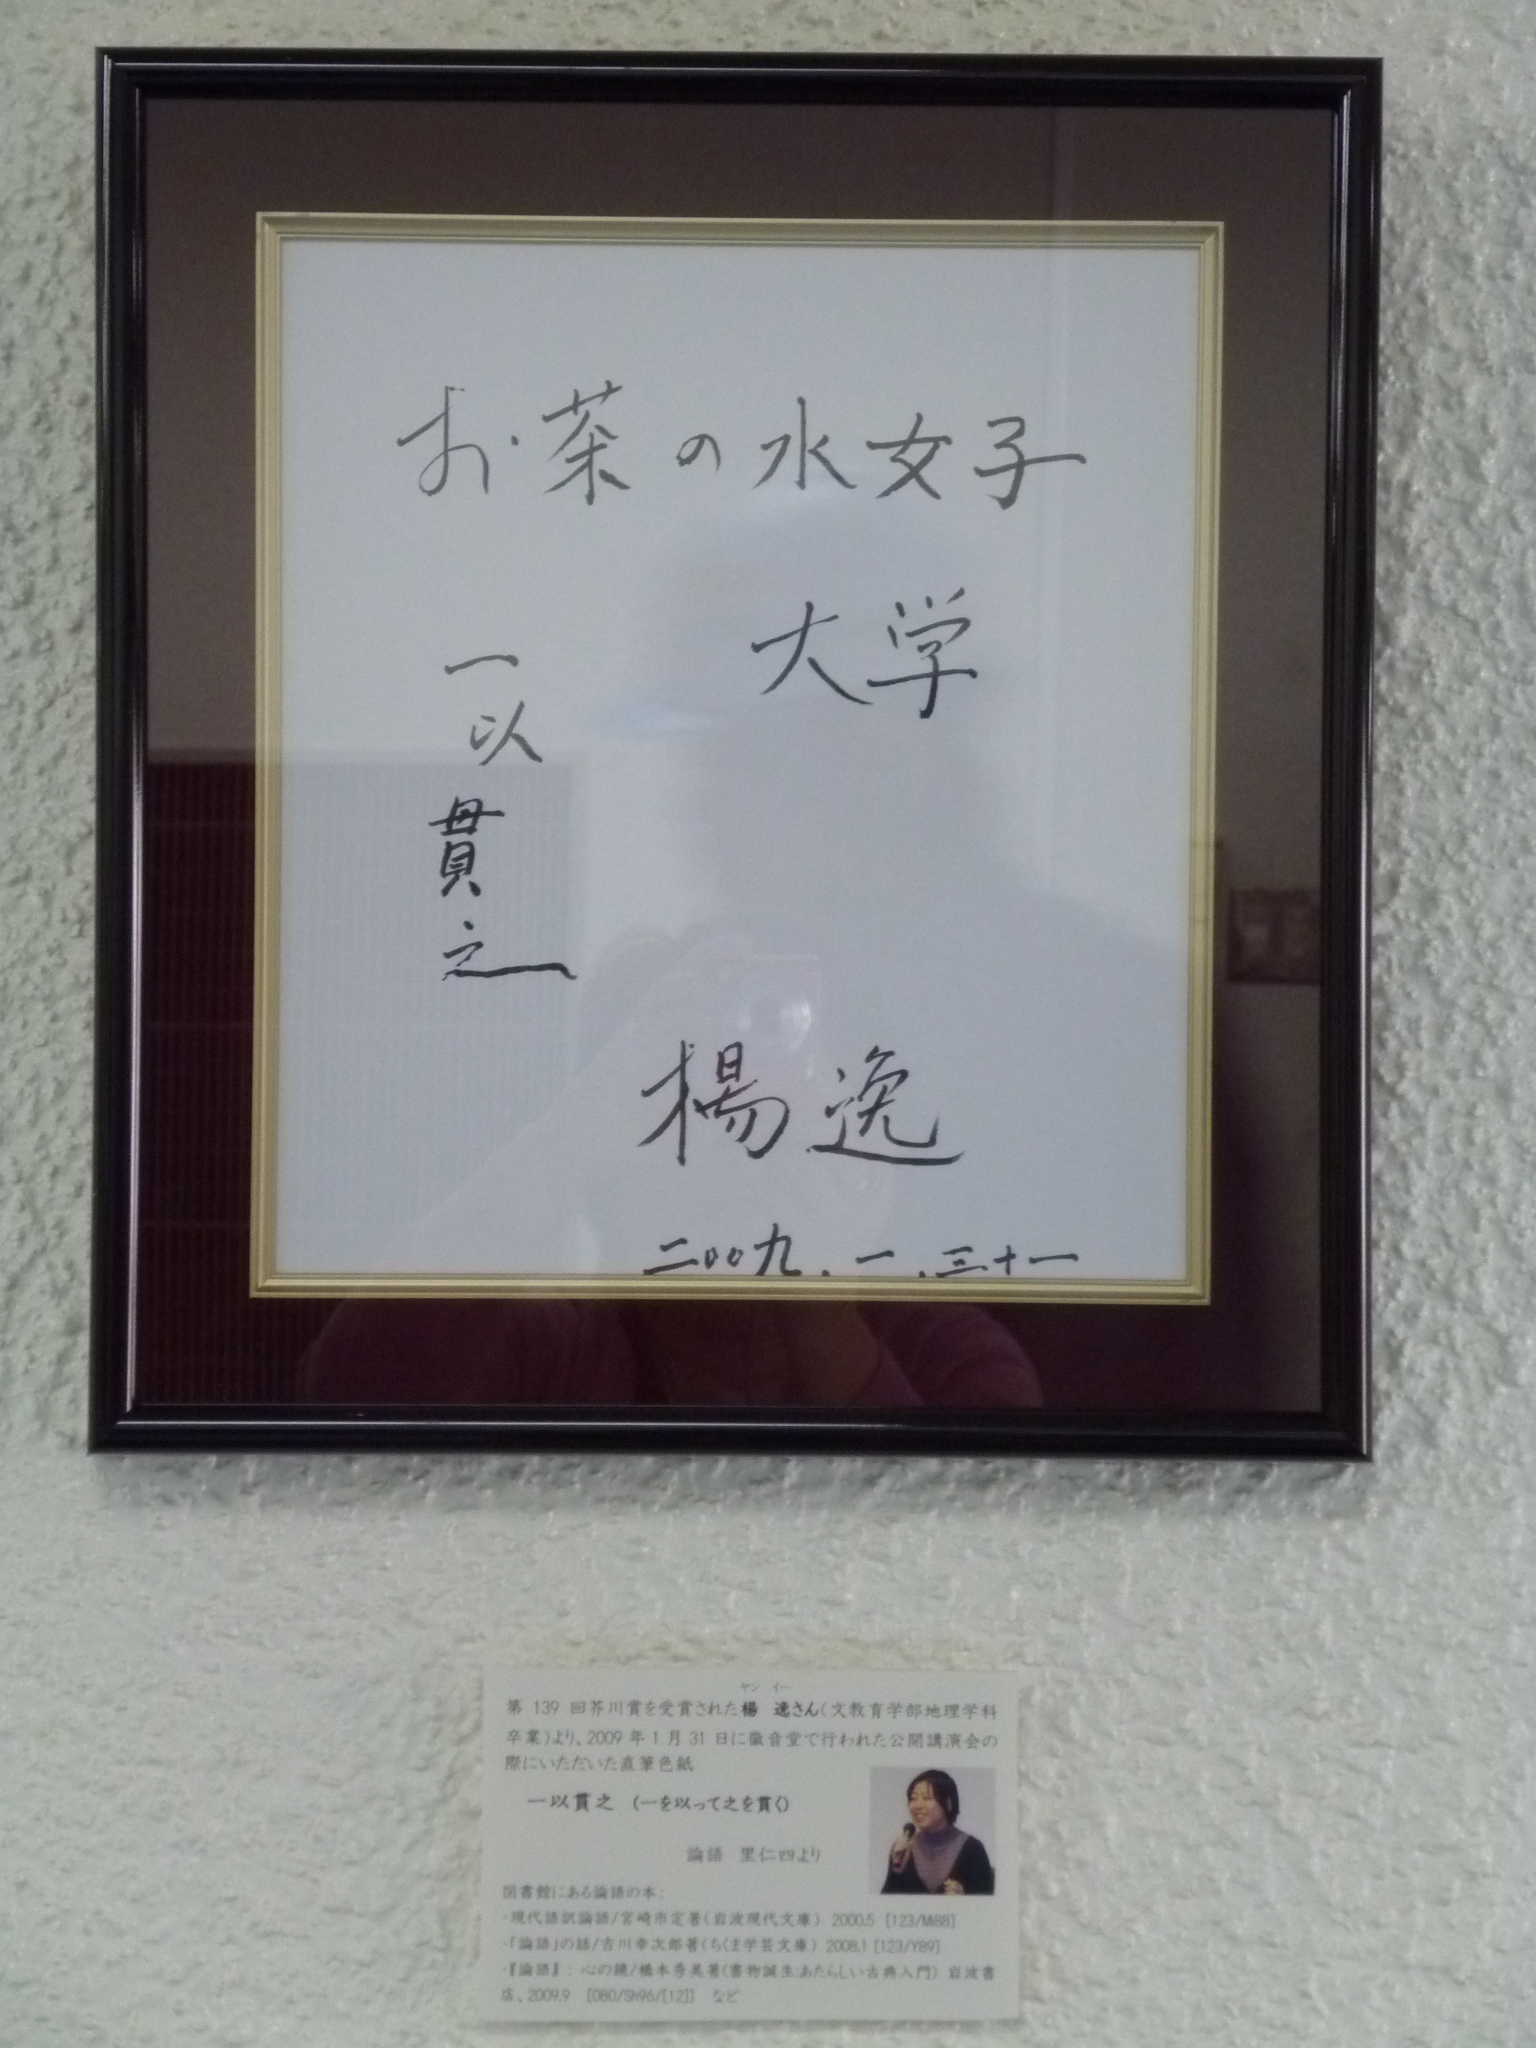 お茶の水女子
大学
一以貫之
楊逸
二〇〇九.一.三十一
ヤン イー
第 139 回芥川賞を受賞された楊 逸さん(文教育学部地理学科
卒業)より、2009 年 1 月 31 日に徽音堂で行われた公開講演会の
際にいただいた直筆色紙
一以貫之 (一を以って之を貫く)
論語 里仁四より
図書館にある論語の本:
・現代語訳論語/宮崎市定著(岩波現代文庫) 2000.5 [123/Mi88]
・「論語」の話/吉川幸次郎著(ちくま学芸文庫) 2008.1 [123/Y89]
・『論語』: 心の鏡/橋本秀美著(書物誕生:あたらしい古典入門) 岩波書
店、2009.9 [080/Sh96/[12]] など